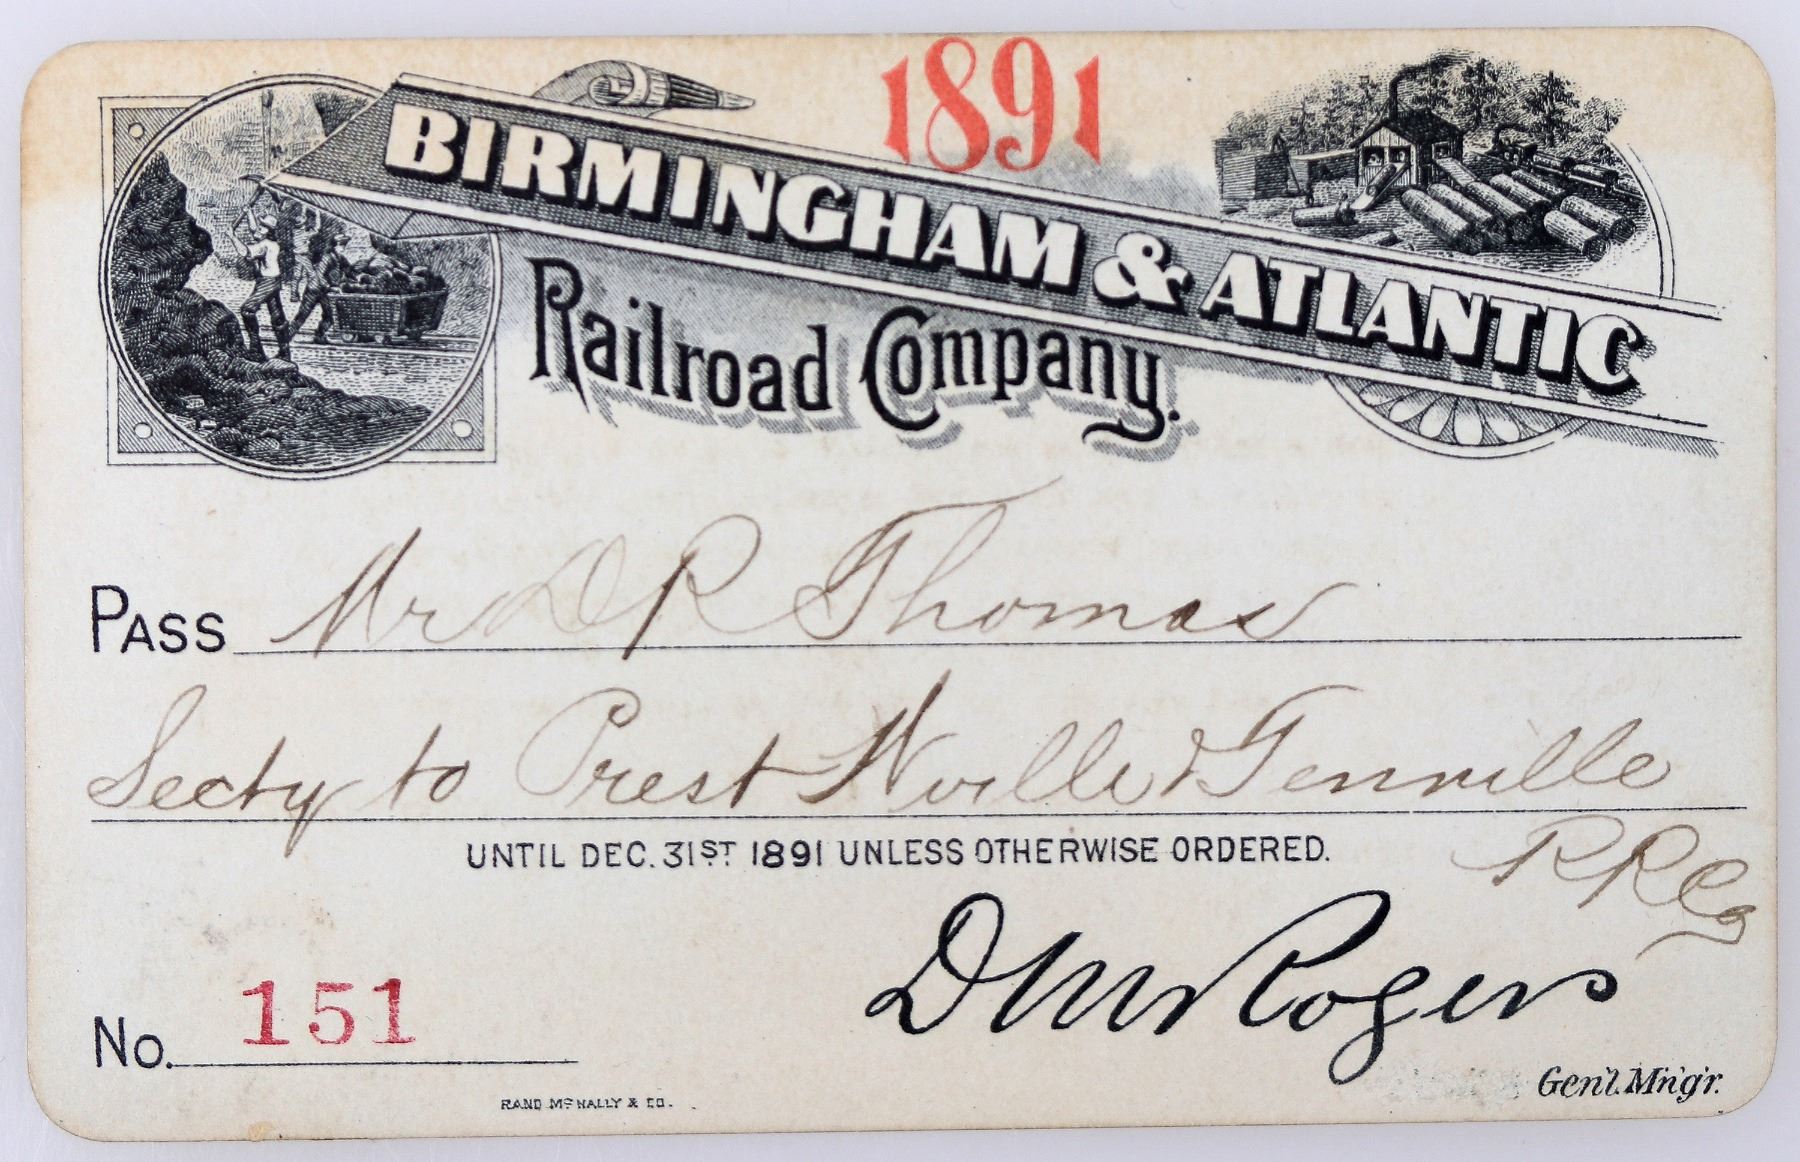 1891
BIRMINGHAM & ATLANTIC
Railroad Company.
PASS Mr D R Thomas
Secty to Prest Nville & Tennville
RRCo
UNTIL DEC. 31ST 1891 UNLESS OTHERWISE ORDERED.
No. 151
D M Rogers
Gen'l. Mn'g'r.
RAND MCNALLY & CO.